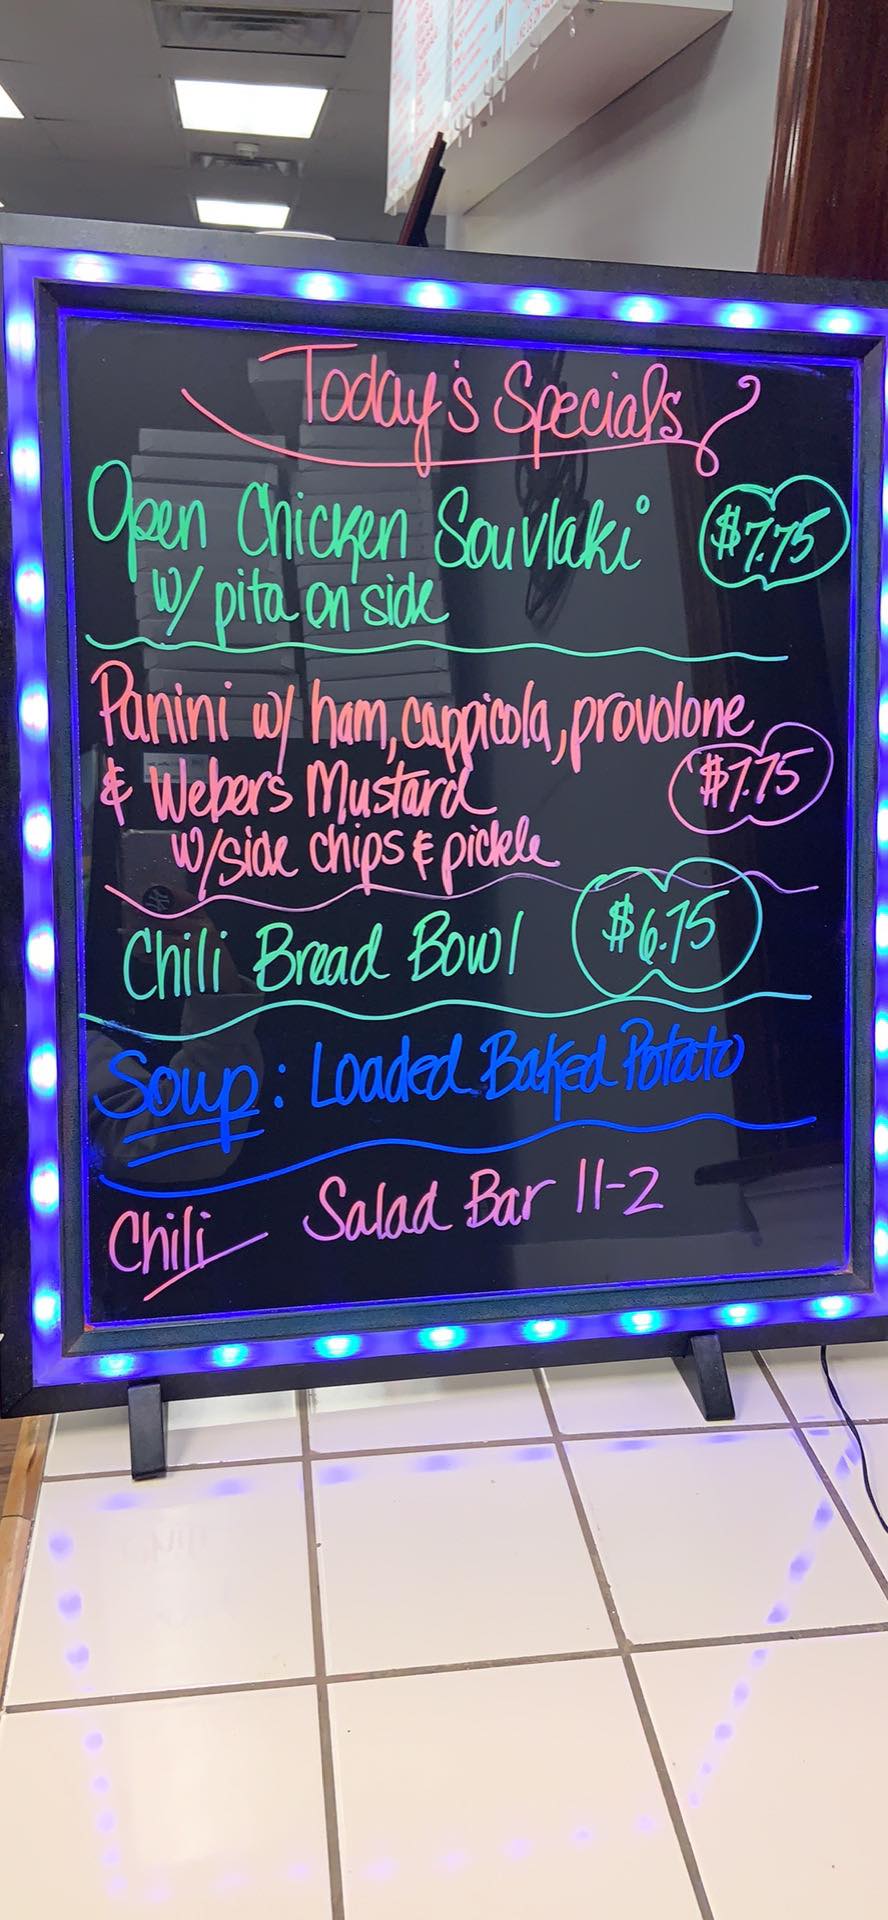 Today's Specials
Open Chicken Souvlaki $7.75
w/ pita on side
Panini w/ ham, cappicola, provolone
& Webers Mustard $7.75
w/side chips & pickle
Chili Bread Bowl $6.75
Soup: Loaded Baked Potato
Chili Salad Bar 11-2